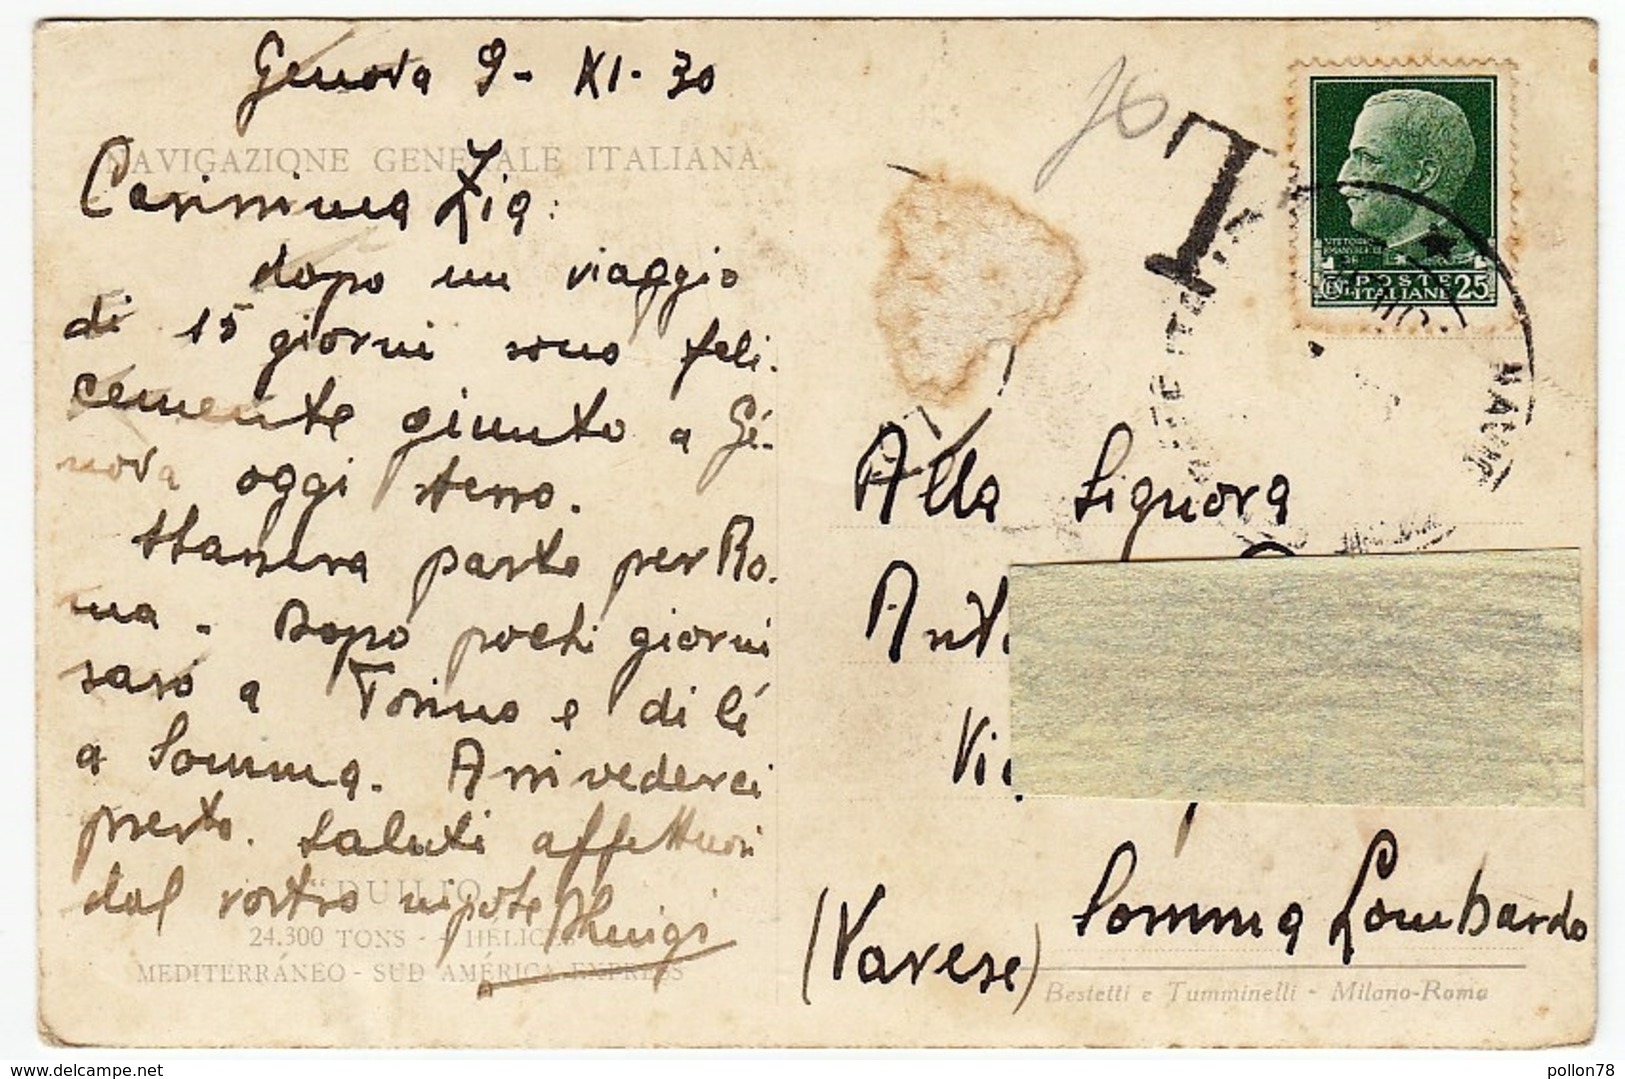 Genova 9-XI-30
NAVIGAZIONE GENERALE ITALIANA
Carissima Zia:
dopo un viaggio
di 15 giorni sono feli-
cemente giunto a Ge-
nova oggi stesso.
Stassera parto per Ro-
ma. Dopo pochi giorni
saró a Torino e di lá
a Somma. Arrivederci
presto. Saluti affettuosi
dal vostro nipote Luigi
"DUILIO"
24.300 TONS - 4 HÉLICES
MEDITERRÁNEO - SUD AMÉRICA-EXPRESS
T
VITTORIO
EMANUELE III
POSTE
ITALIANE 25
Alla Signora
Somma Lombardo
(Varese)
Bestetti e Tumminelli - Milano-Roma
www.delcampe.net
pollon78